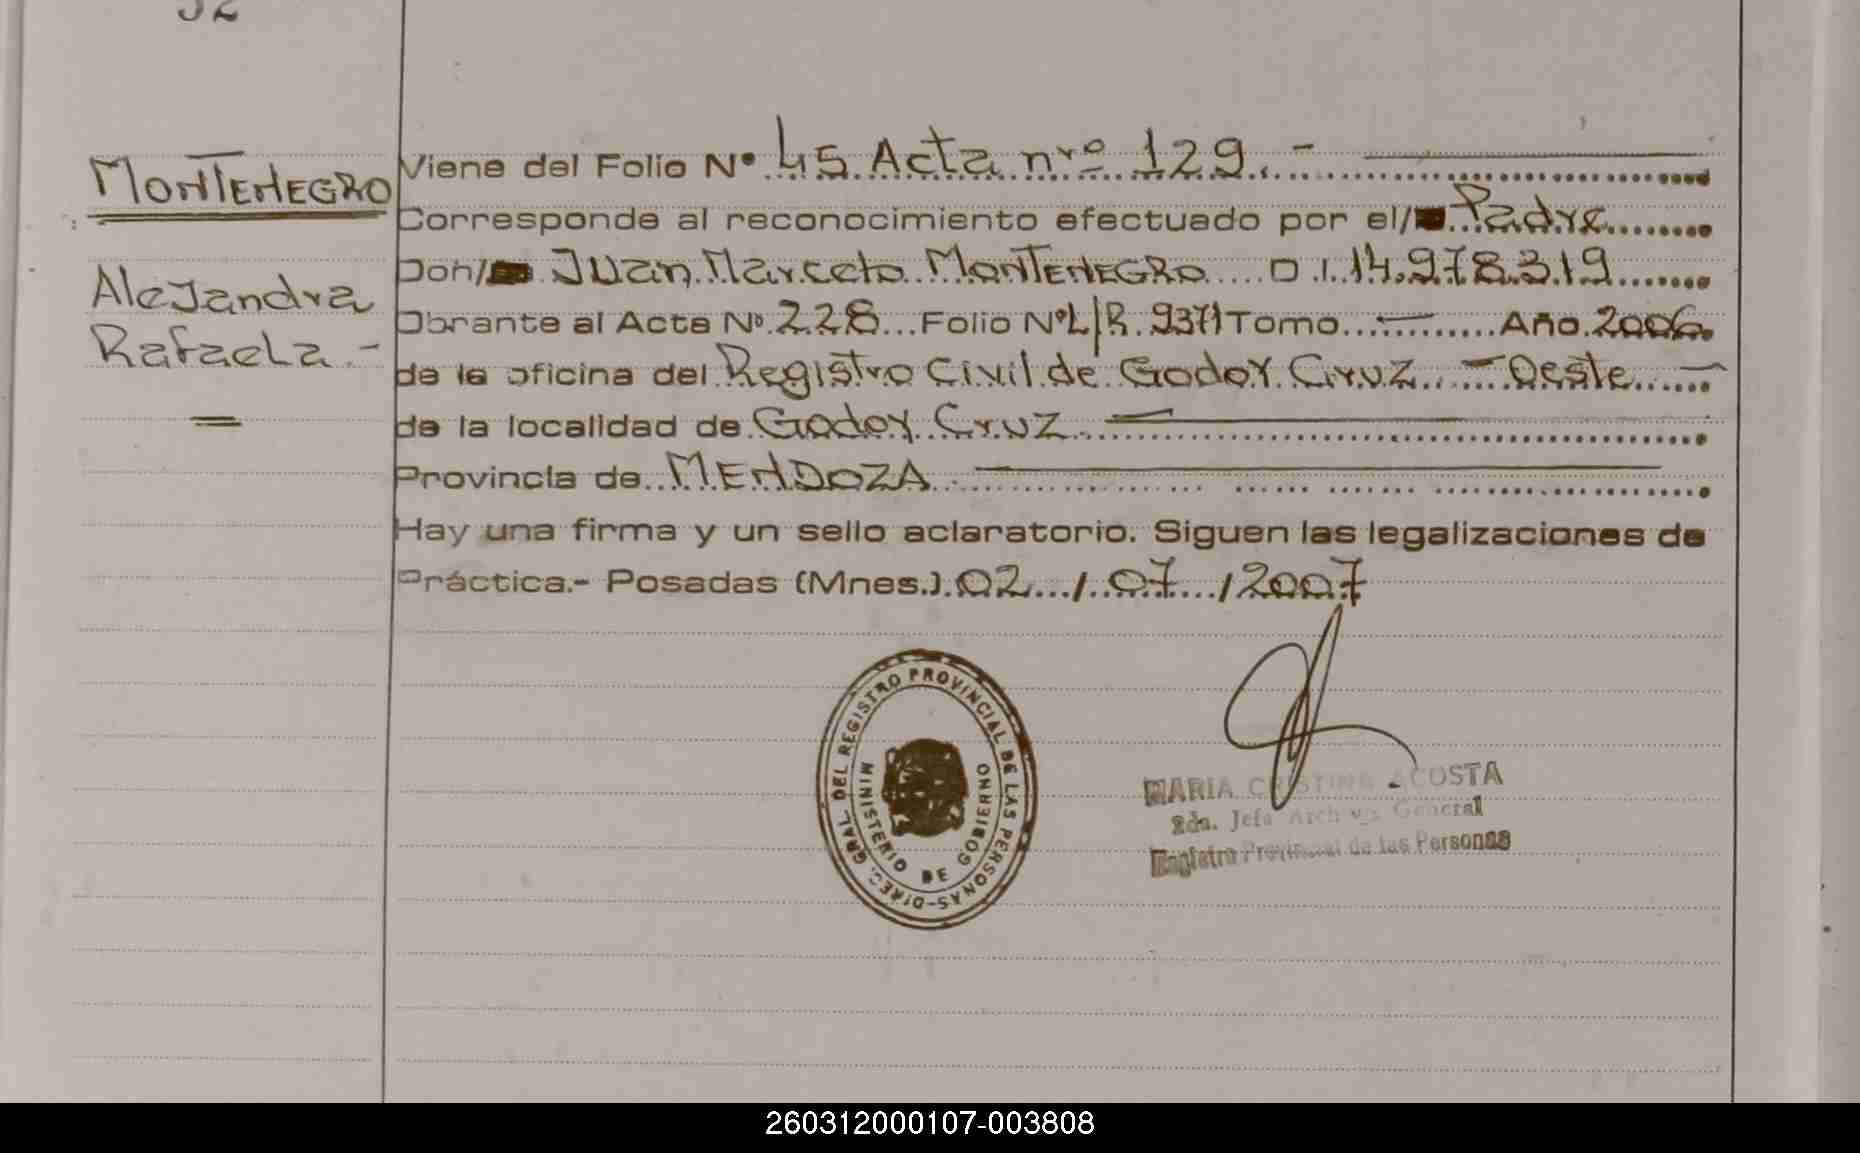 MONTENEGRO
Alejandra
Rafaela.-
Viene del Folio Nº 45 Acta nrº 129.-
Corresponde al reconocimiento efectuado por el/ Padre
Don/ Juan Marcelo MONTENEGRO D.I. 14.978.319
Obrante al Acta Nº 228 Folio Nº L/R. 9371 Tomo — Año 2006
de la oficina del Registro Civil de Godoy Cruz - Oeste
de la localidad de Godoy Cruz
Provincia de MENDOZA
Hay una firma y un sello aclaratorio. Siguen las legalizaciones de
Práctica.- Posadas (Mnes.) 02 / 07 / 2007
DIREC. GRAL. DEL REGISTRO PROVINCIAL DE LAS PERSONAS-
MINISTERIO DE GOBIERNO
MARIA CRISTINA ACOSTA
2da. Jefa Archivo General
Registro Provincial de las Personas
260312000107-003808